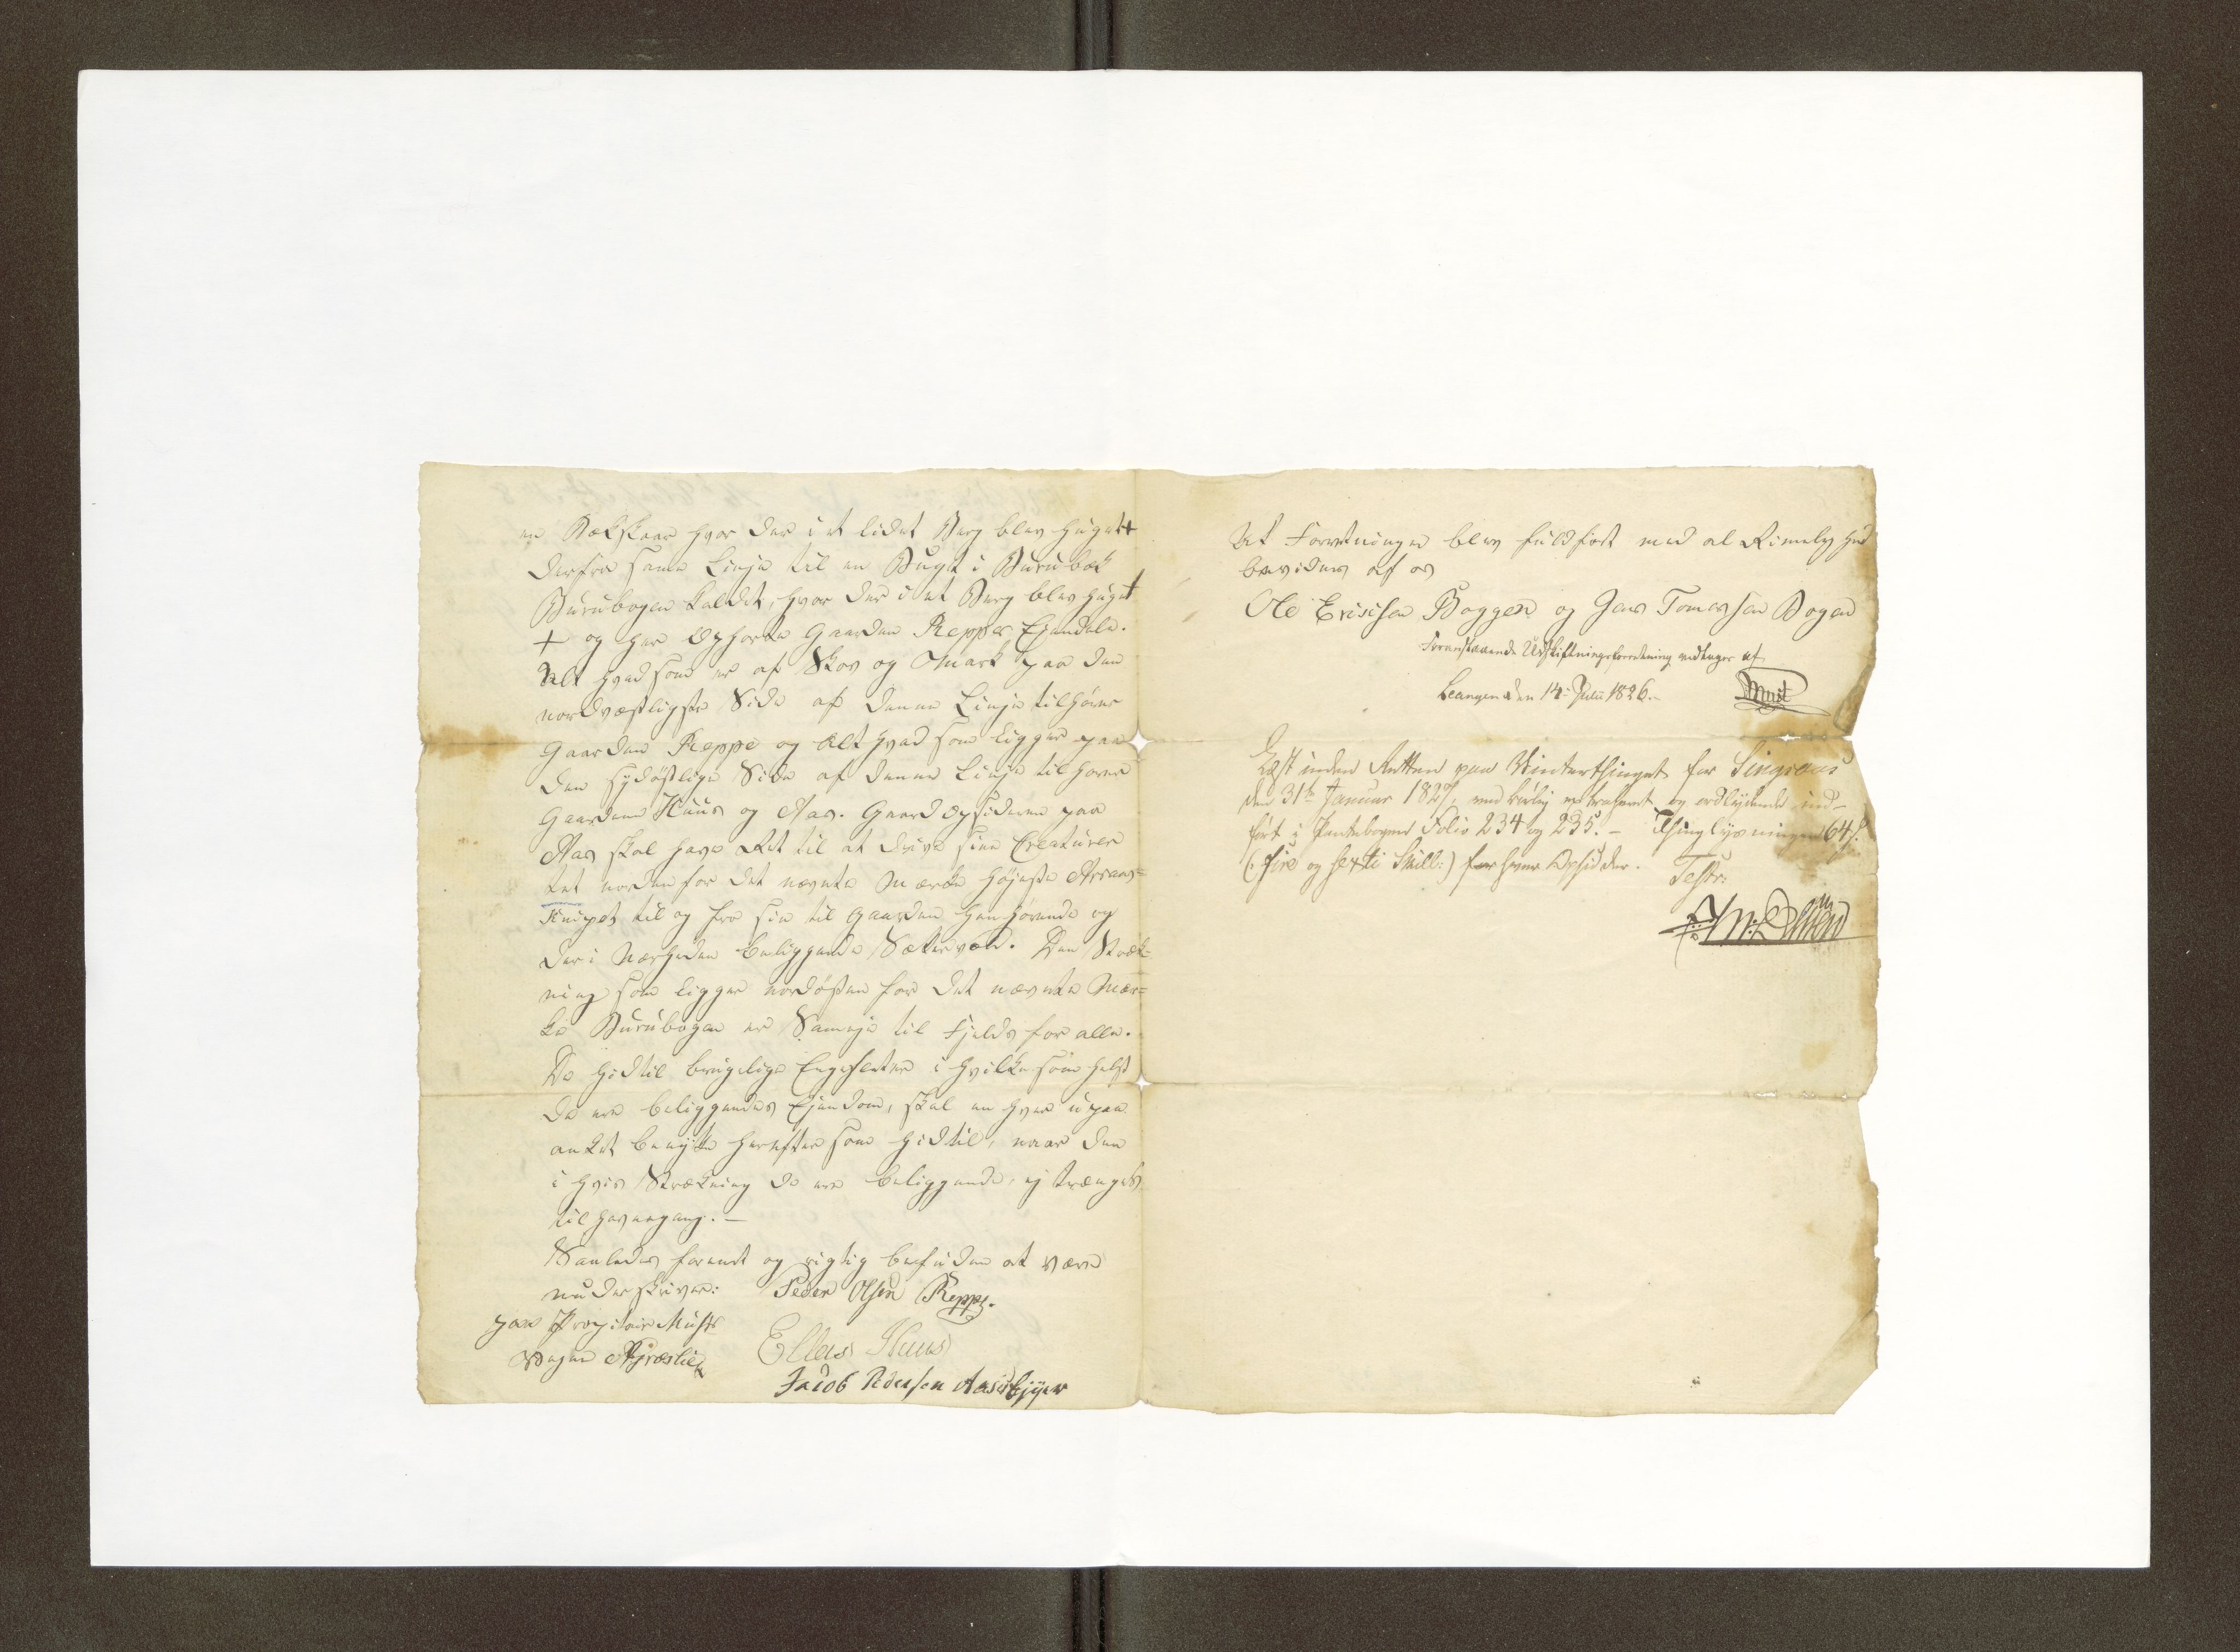 en Bækskaar hvor der i et lidet Berg blev hugget +
derfra samme Linje til en Bugt i Burubæk
Burubogen kaldet, hvor der i et Berg blev hugget
+ og her Ophorte Gaarden Reppes Ejendele.
Alt hvad som er af Skov og Mark paa den
nordvæstligste Side af denne Linje tilhører
Gaarden Reppe og Alt hvad som ligger paa
den sydöstlige Side af denne Linje tilhorer
Gaardene Kuus og Aas. Gaard Opsiderne paa
Aas skal have Ret til at drive sine Creaturer
tet norden for det nævnte Mærke Höjeste
Knipet til og fra sin til Gaarden henhørende og
der i Nærheden beliggende Sætervold. Den Stræk=
ning som ligger nordösten for det nævnte Mær=
ke Burubogen er Sameje til Fjelds for alle.
De hidtil brugelige Engesletter i hvilke som helst
de ere beliggendes Ejendom, skal en hver upaa
anket benytte herefter som hidtil, naar den
i hvis Strækning de ere beliggende, ej trænges
til havnegang. —
Saaledes forenet og rigtig befunden at være
underskriver: Peder Olsen Reppe.
paa Propitair Must
Vegne Ellas Kuus
Jacob Pedersen
At Forretningen blev fuldfört med al Rimelighed
bevidnes af os
Ole Ericksen Boggen og Jens Tomassen Bogen
Foranstaaende Udskiftningsforretning vedtages af
Leangen den 14 Julii 1826. Must
Læst inden Retten paa Vinterthinget for Singsaas
den 31te Januar 1827, og ordlydende ind-
fört i Pantebogen Folio 234 og 235. — Thinglysningen 64 s.
(fire og sexti Skill:) for hver Opsidder. Testr: